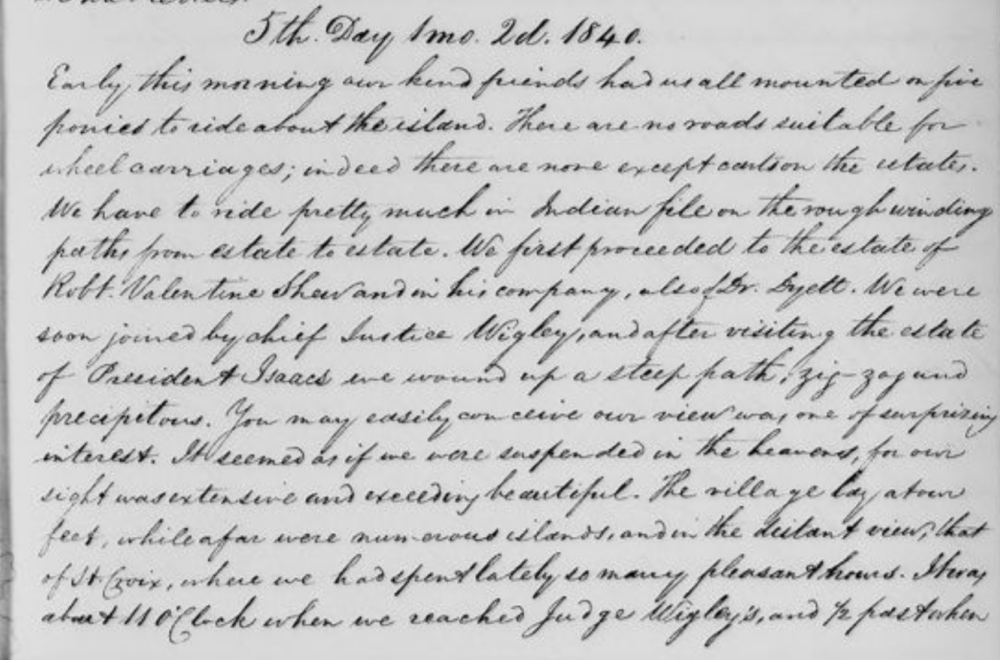 5th. Day 1 mo. 2d. 1840.
Early this morning our kind friends had us all mounted on five
ponies to ride about the island. There are no roads suitable for
wheel carriages; indeed there are none except carts on the estates.
We have to ride pretty much in Indian file on the rough winding
paths from estate to estate. We first proceeded to the estate of
Robt. Valentine Shew and in his company, also of Dr. Dyett. We were
soon joined by chief Justice Wigley, and after visiting the estate
of President Isaacs we wound up a steep path, zig-zag and
precipitous. You may easily conceive our view was one of surprizing
interest. It seemed as if we were suspended in the heavens, for our
sight was extensive and exceeding beautiful. The village lay at our
feet, while afar were numerous islands, and in the distant view, that
of St Croix, where we had spent lately so many pleasant hours. It was
about 11 O'Clock when we reached Judge Wigley's, and 1/2 past when